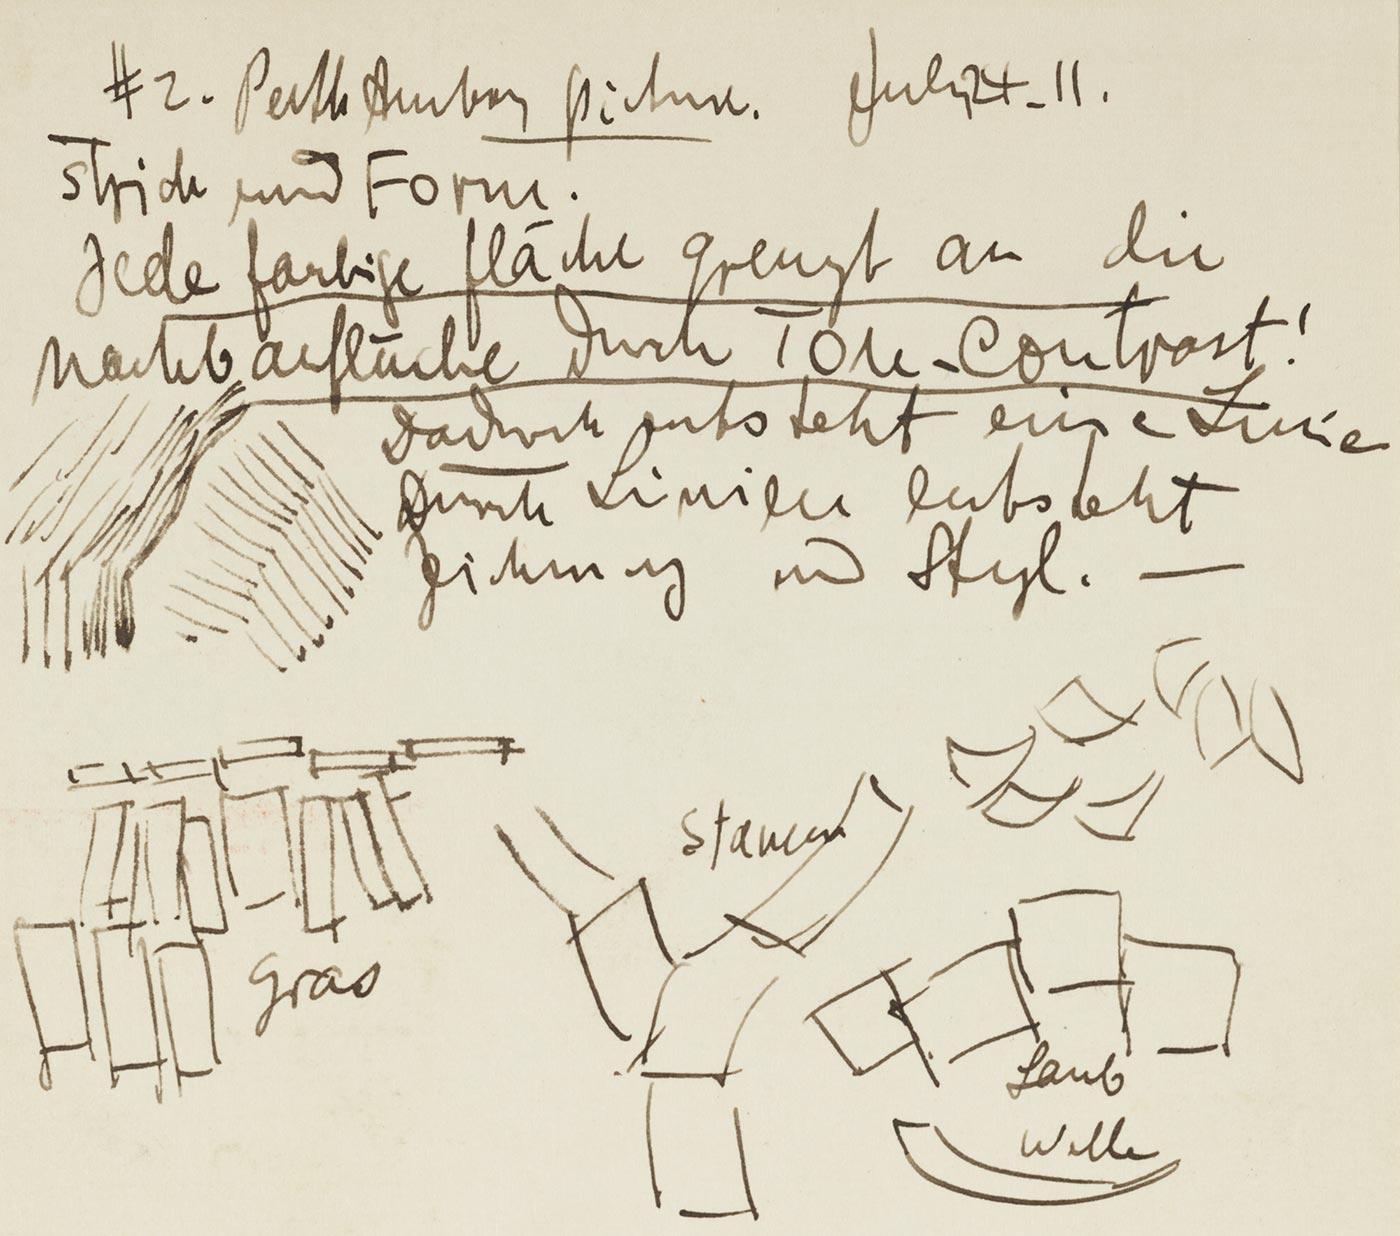 #2. Perth Amboy picture. July 24-11.
Strich und Form.
Jede farbige fläche grenzt an die
Nachbarfläche durch Ton-Contrast!
Dadurch entsteht eine Linie
Durch Linien entsteht
Zeichnung und Styl. —
Stamm
Gras
Laub
Welle